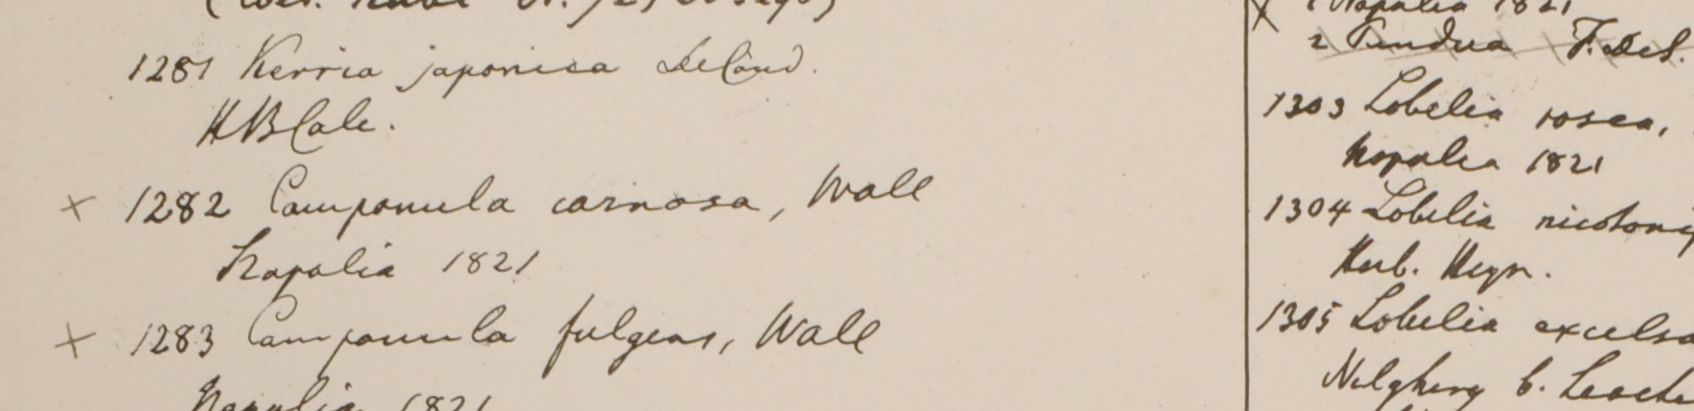 1281 Kerria japonica DeCand.
HBCalc.
x 1282 Campanula carnosa, Wall
Napalia 1821
x 1283 Campanula fulgens, Wall
Napalia 1821
x 1 Napalia 1821
2 Pundua F. DeS.
1303 Lobelia rosea,
Napalia 1821
1304 Lobelia nicotonif
Herb. Heyn.
1305 Lobelia excelsa
Nilgherry